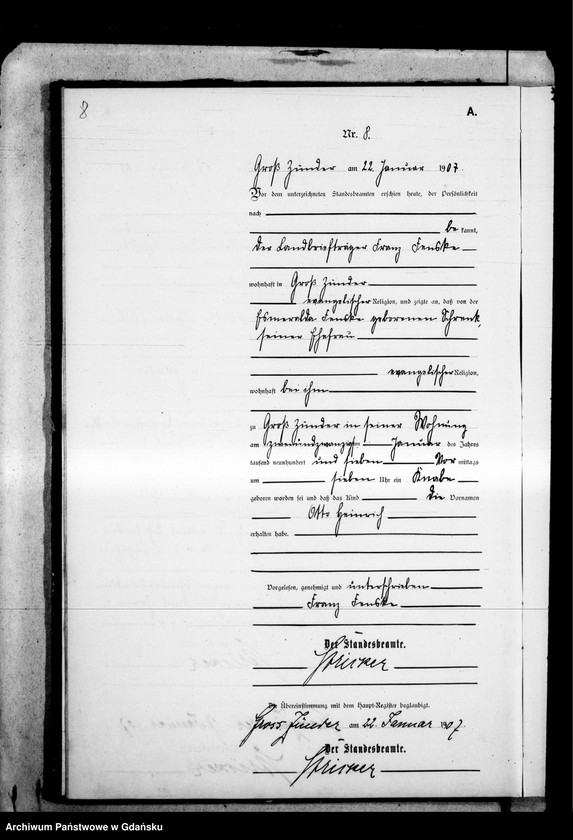 8
A.
Nr. 8.
Groß Zünder am 22. Januar 1907.
Vor dem unterzeichneten Standesbeamten erschien heute, der Persönlichkeit
nach
be kannt,
der Landbriefträger Franz Fenske
wohnhaft in Groß Zünder
evangelischer Religion, und zeigte an, daß von der
Esmeralda Fenske geborenen Schrenk,
seiner Ehefrau
evangelischer Religion,
wohnhaft bei ihm
zu Groß Zünder in seiner Wohnung
am zweiundzwanzigsten Januar des Jahres
tausend neunhundert und sieben Vor mittags
um sieben Uhr ein Knabe
geboren worden sei und daß das Kind die Vornamen
Otto Heinrich
erhalten habe.
Vorgelesen, genehmigt und unterschrieben
Franz Fenske
Der Standesbeamte.
Die Übereinstimmung mit dem Haupt-Register beglaubigt.
Gross Zünder am 22. Januar 1907.
Der Standesbeamte.
Archiwum Państwowe w Gdańsku